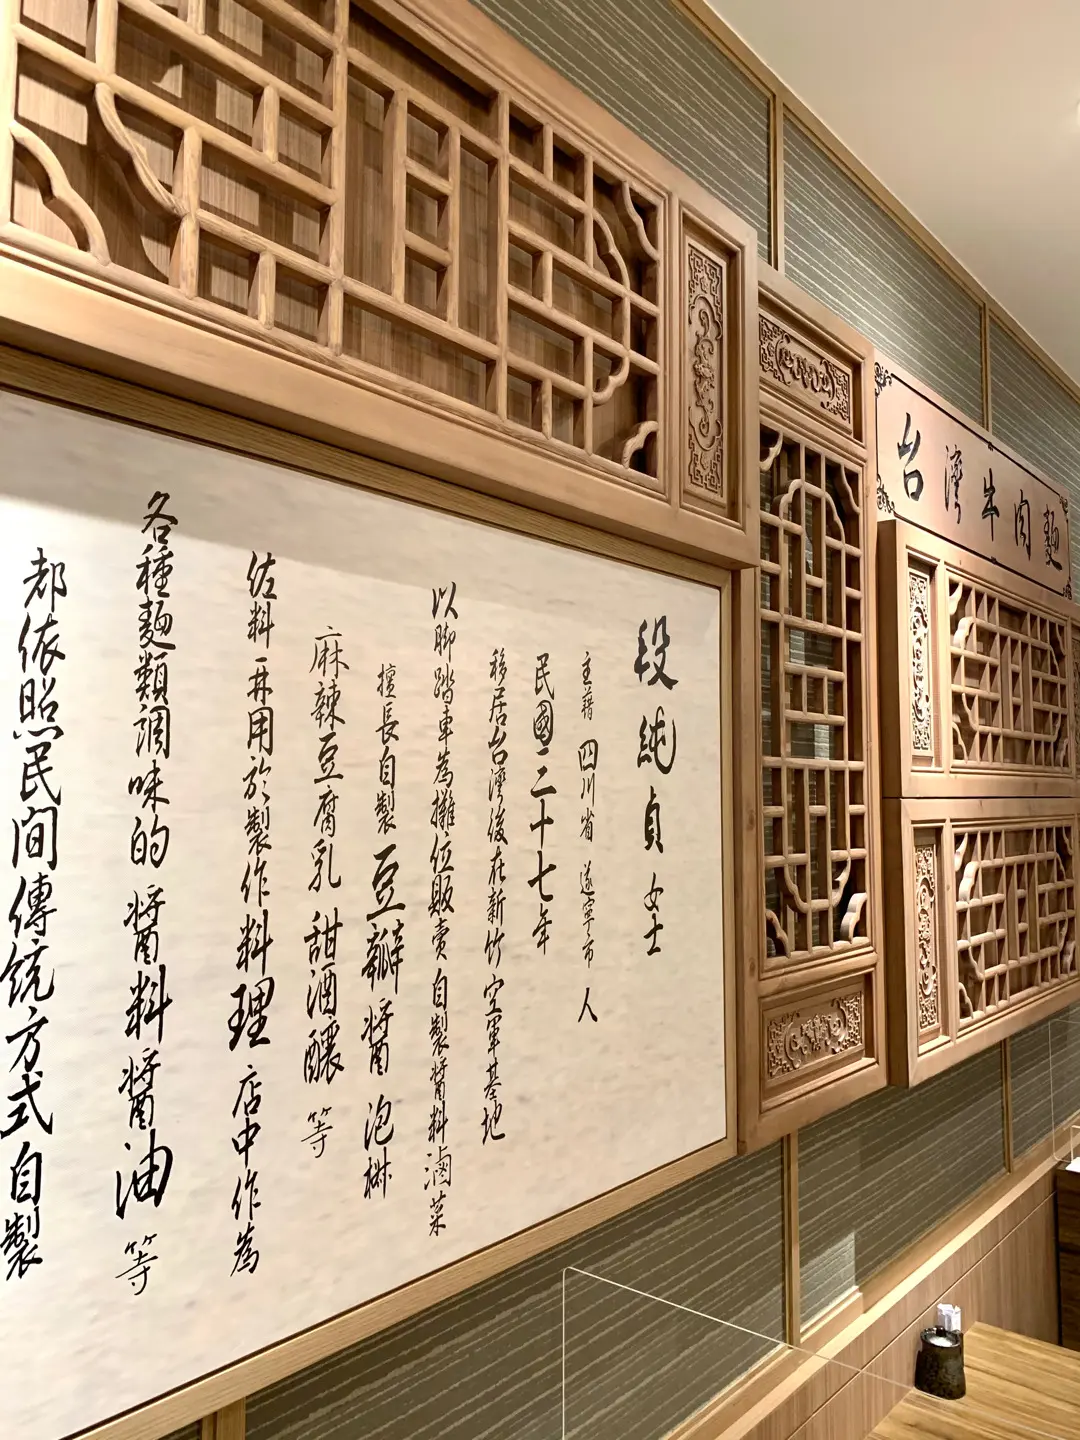 段純貞 女士
主籍 四川省 遂寧市 人
民國二十七年
移居台灣後在新竹 空軍基地
以腳踏車為攤位販賣 自製醬料滷菜
擅長自製 豆瓣醬 泡椒
麻辣豆腐乳 甜酒釀 等
佐料 再用於製作料理 店中作為
各種麵類調味的 醬料醬油 等
都依照民間傳統方式自製
台灣牛肉麵